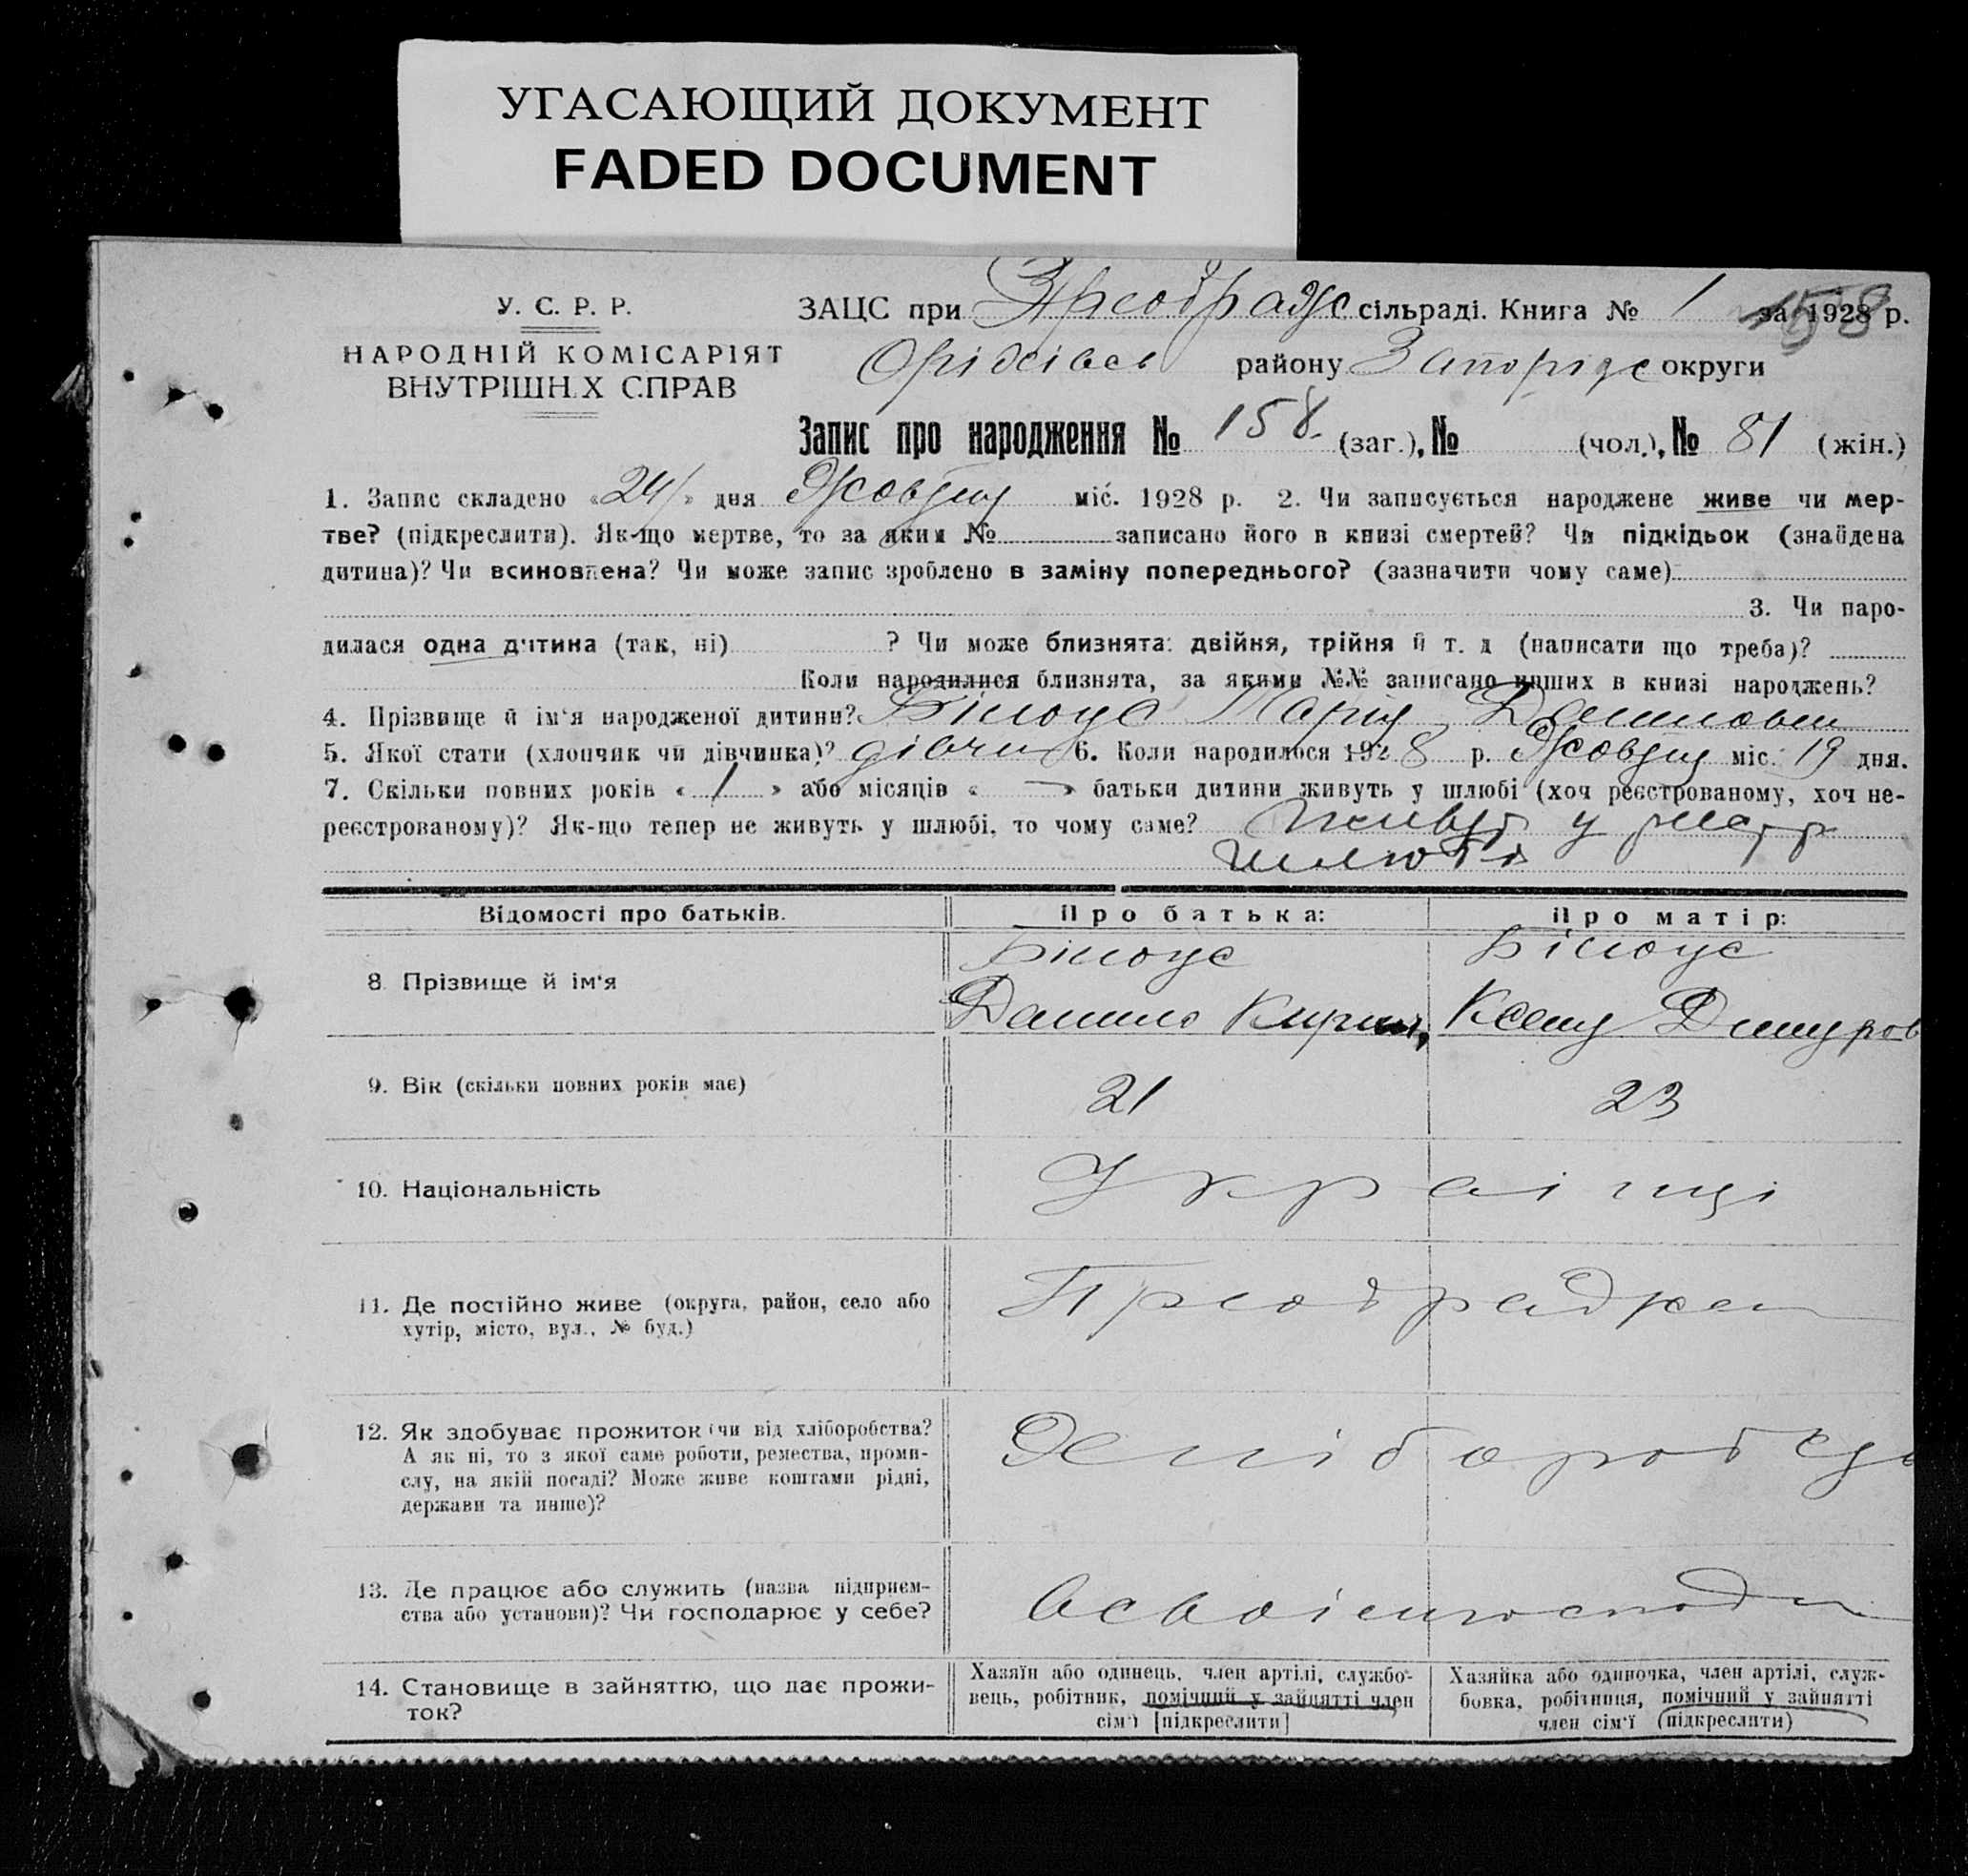 УГАСАЮЩИЙ ДОКУМЕНТ
FADED DOCUMENT
У. С. Р. Р.
НАРОДНІЙ КОМІСАРІЯТ
ВНУТРІШН.Х СПРАВ
ЗАЦС при Преображс сільраді. Книга № 1 за 1928 р.
158
Оріхівськ району Запоріжс округи
Запис про народження № 158 (заг.), № (чол.), № 81 (жін.)
1. Запис складено «24» дня Жовтня міс. 1928 р. 2. Чи записується народжене живе чи мер-
тве? (підкреслити). Як-що мертве, то за яким № записано його в книзі смертей? Чи підкідьок (знайдена
дитина)? Чи всиновлена? Чи може запис зроблено в заміну попереднього? (зазначити чому саме)
3. Чи наро-
дилася одна дитина (так, ні) ? Чи може близнята: двійня, трійня й т. д (написати що треба)?
Коли народилися близнята, за якими №№ записано инших в книзі народжень?
4. Прізвище й ім‘я народженої дитини? Білоус Марія Данилови
5. Якої стати (хлопчик чи дівчинка)? дівчи 6. Коли народилося 1928 р. Жовтня міс. 19 дня.
7. Скільки повних років « 1 » або місяців « — » батьки дитини живуть у шлюбі (хоч реєстрованому, хоч не-
реєстрованому)? Як-що тепер не живуть у шлюбі, то чому саме? Живут у
шлюбі
Відомості про батьків. Про батька: Про матір:
8 Прізвище й ім‘я Білоус Білоус
Данило Кирил, Ксенія
9. Вік (скільки повних років має) 21 23
10. Національність Українці
11. Де постійно живе (округа, район, село або
хутір, місто, вул., № буд.)
Преображен
12. Як здобуває прожиток (чи від хліборобства?
А як ні, то з якої саме роботи, ремества, проми-
слу, на якій посаді? Може живе коштами рідні,
держави та инше)?
Хліборобст
13. Де працює або служить (назва підприєм-
ства або установи)? Чи господарює у себе?
в своім господ
14. Становище в зайняттю, що дає прожи-
ток?
Хазяїн або одинець, член артілі, службо-
вець, робітник, помічний у зайнятті член
сім‘ї [підкреслити]
Хазяйка або одиночка, член артілі, служ-
бовка, робітниця, помічний у зайнятті
член сім‘ї (підкреслити)